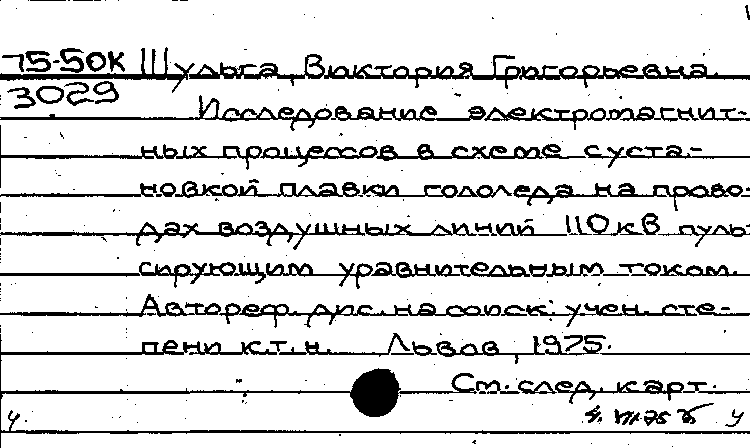 75-50К Шульга, Виктория Григорьевна.
3029 Исследование электромагнит-
ных процессов в схеме с уста-
новкой плавки гололеда на прово-
дах воздушных линий 110 кВ пуль
сирующим уравнительным током.
Автореф. дис. на соиск. учен. сте-
пени к.т.н. Львов, 1975.
См. след. карт.
ч. У